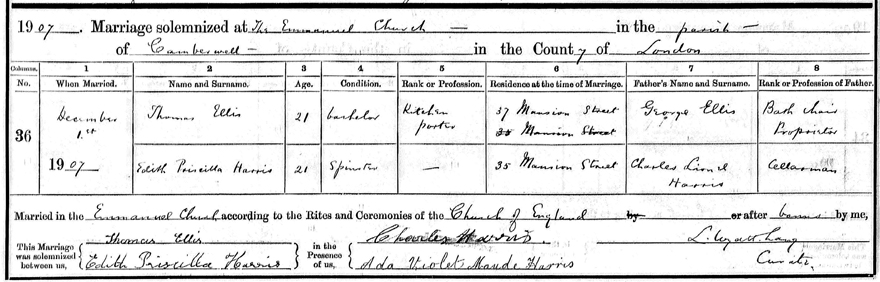 1907. Marriage solemnized at The Emmanuel Church — in the parish —
of Camberwell — in the County of London
Columns. 1 2 3 4 5 6 7 8
No. When Married. Name and Surname. Age. Condition. Rank or Profession. Residence at the time of Marriage. Father's Name and Surname. Rank or Profession of Father.
36 December 1st 1907
Thomas Ellis 21 bachelor Kitchen porter 37 Mansion Street 35 Mansion Street George Ellis Bath chair Proprietor
Edith Priscilla Harris 21 Spinster — 35 Mansion Street Charles Lionel Harris Cellarman
Married in the Emmanuel Church according to the Rites and Ceremonies of the Church of England by or after banns by me,
This Marriage was solemnized between us,
Thomas Ellis
Edith Priscilla Harris
in the Presence of us,
Charles Harris.
Ada Violet Maude Harris
Curate.